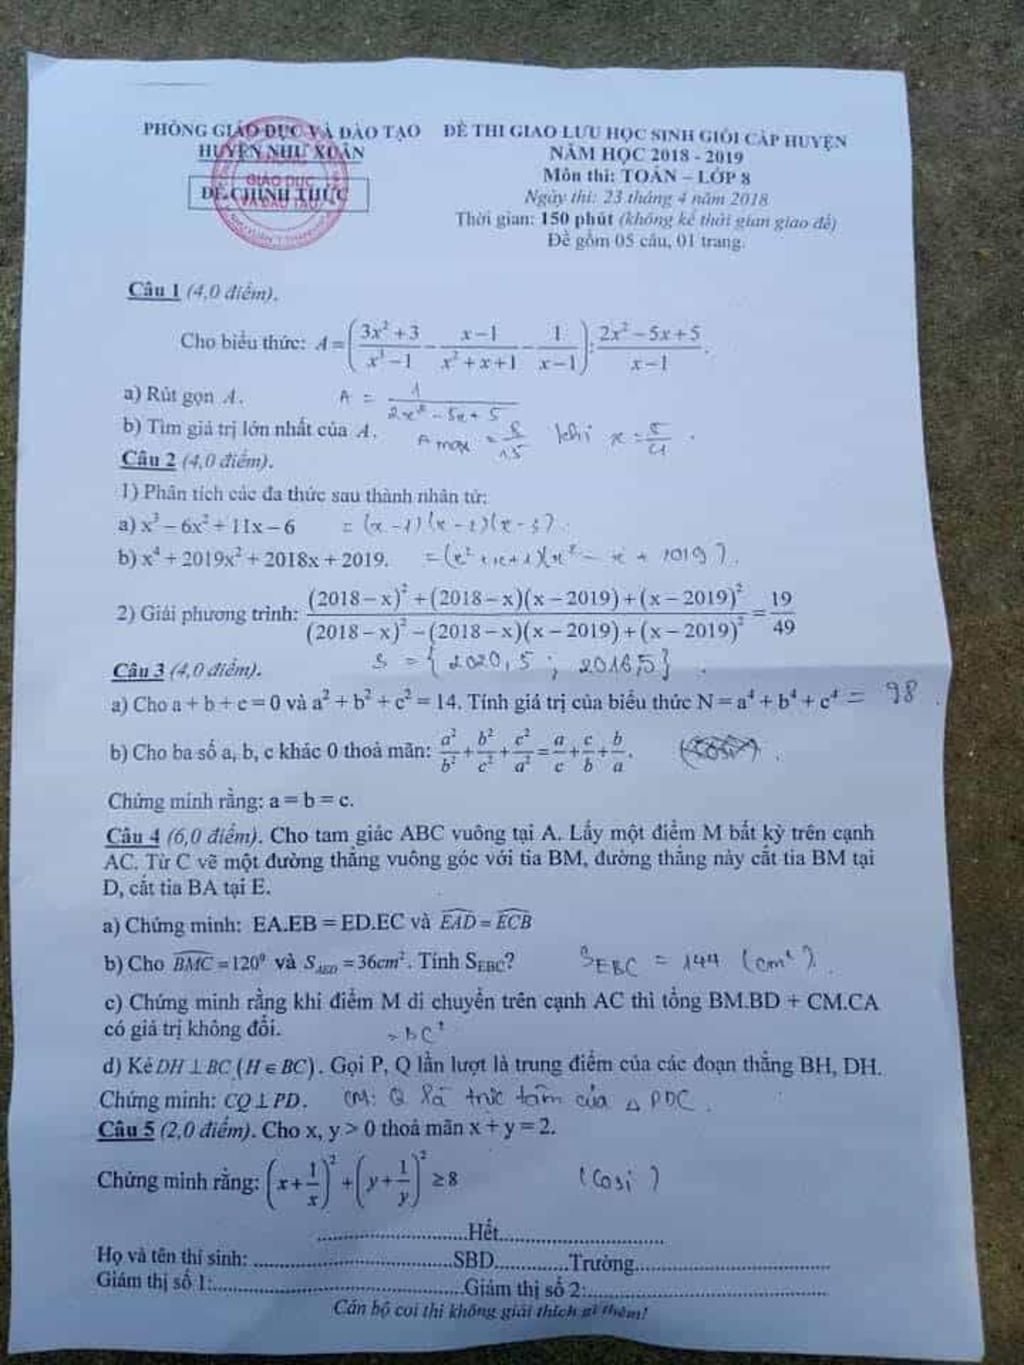 PHÒNG GIÁO DỤC VÀ ĐÀO TẠO
HUYỆN NHƯ XUÂN
ĐỀ CHÍNH THỨC
GIÁO DỤC
VÀ ĐÀO TẠO
ĐỀ THI GIAO LƯU HỌC SINH GIỎI CẤP HUYỆN
NĂM HỌC 2018 - 2019
Môn thi: TOÁN – LỚP 8
Ngày thi: 23 tháng 4 năm 2018
Thời gian: 150 phút (không kể thời gian giao đề)
Đề gồm 05 câu, 01 trang.
Câu 1 (4,0 điểm).
Cho biểu thức: A = ( (3x² + 3)/(x³ − 1) − (x − 1)/(x² + x + 1) − 1/(x − 1) ) : (2x² − 5x + 5)/(x − 1).
a) Rút gọn A. A = 1/(2x² − 5x + 5)
b) Tìm giá trị lớn nhất của A. A max = 8/15 khi x = 5/4.
Câu 2 (4,0 điểm).
1) Phân tích các đa thức sau thành nhân tử:
a) x³ – 6x² + 11x – 6 = (x – 1)(x – 2)(x – 3).
b) x⁴ + 2019x² + 2018x + 2019. = (x² + x + 1)(x² – x + 2019).
2) Giải phương trình: ((2018 − x)² + (2018 − x)(x − 2019) + (x − 2019)²)/((2018 − x)² − (2018 − x)(x − 2019) + (x − 2019)²) = 19/49
S = {2020,5 ; 2016,5}.
Câu 3 (4,0 điểm).
a) Cho a + b + c = 0 và a² + b² + c² = 14. Tính giá trị của biểu thức N = a⁴ + b⁴ + c⁴ = 98.
b) Cho ba số a, b, c khác 0 thoả mãn: a²/b² + b²/c² + c²/a² = a/c + c/b + b/a.
Chứng minh rằng: a = b = c.
Câu 4 (6,0 điểm). Cho tam giác ABC vuông tại A. Lấy một điểm M bất kỳ trên cạnh
AC. Từ C vẽ một đường thẳng vuông góc với tia BM, đường thẳng này cắt tia BM tại
D, cắt tia BA tại E.
a) Chứng minh: EA.EB = ED.EC và EAD = ECB
b) Cho BMC = 120⁰ và S_AED = 36cm². Tính S_EBC? S_EBC = 144 (cm²).
c) Chứng minh rằng khi điểm M di chuyển trên cạnh AC thì tổng BM.BD + CM.CA
có giá trị không đổi. = BC²
d) Kẻ DH ⊥ BC (H ∈ BC). Gọi P, Q lần lượt là trung điểm của các đoạn thẳng BH, DH.
Chứng minh: CQ ⊥ PD. CM: Q là trực tâm của △ PDC.
Câu 5 (2,0 điểm). Cho x, y > 0 thoả mãn x + y = 2.
Chứng minh rằng: (x + 1/x)² + (y + 1/y)² ≥ 8 (Cosi)
Hết
Họ và tên thí sinh: SBD Trường
Giám thị số 1: Giám thị số 2:
Cán bộ coi thi không giải thích gì thêm!